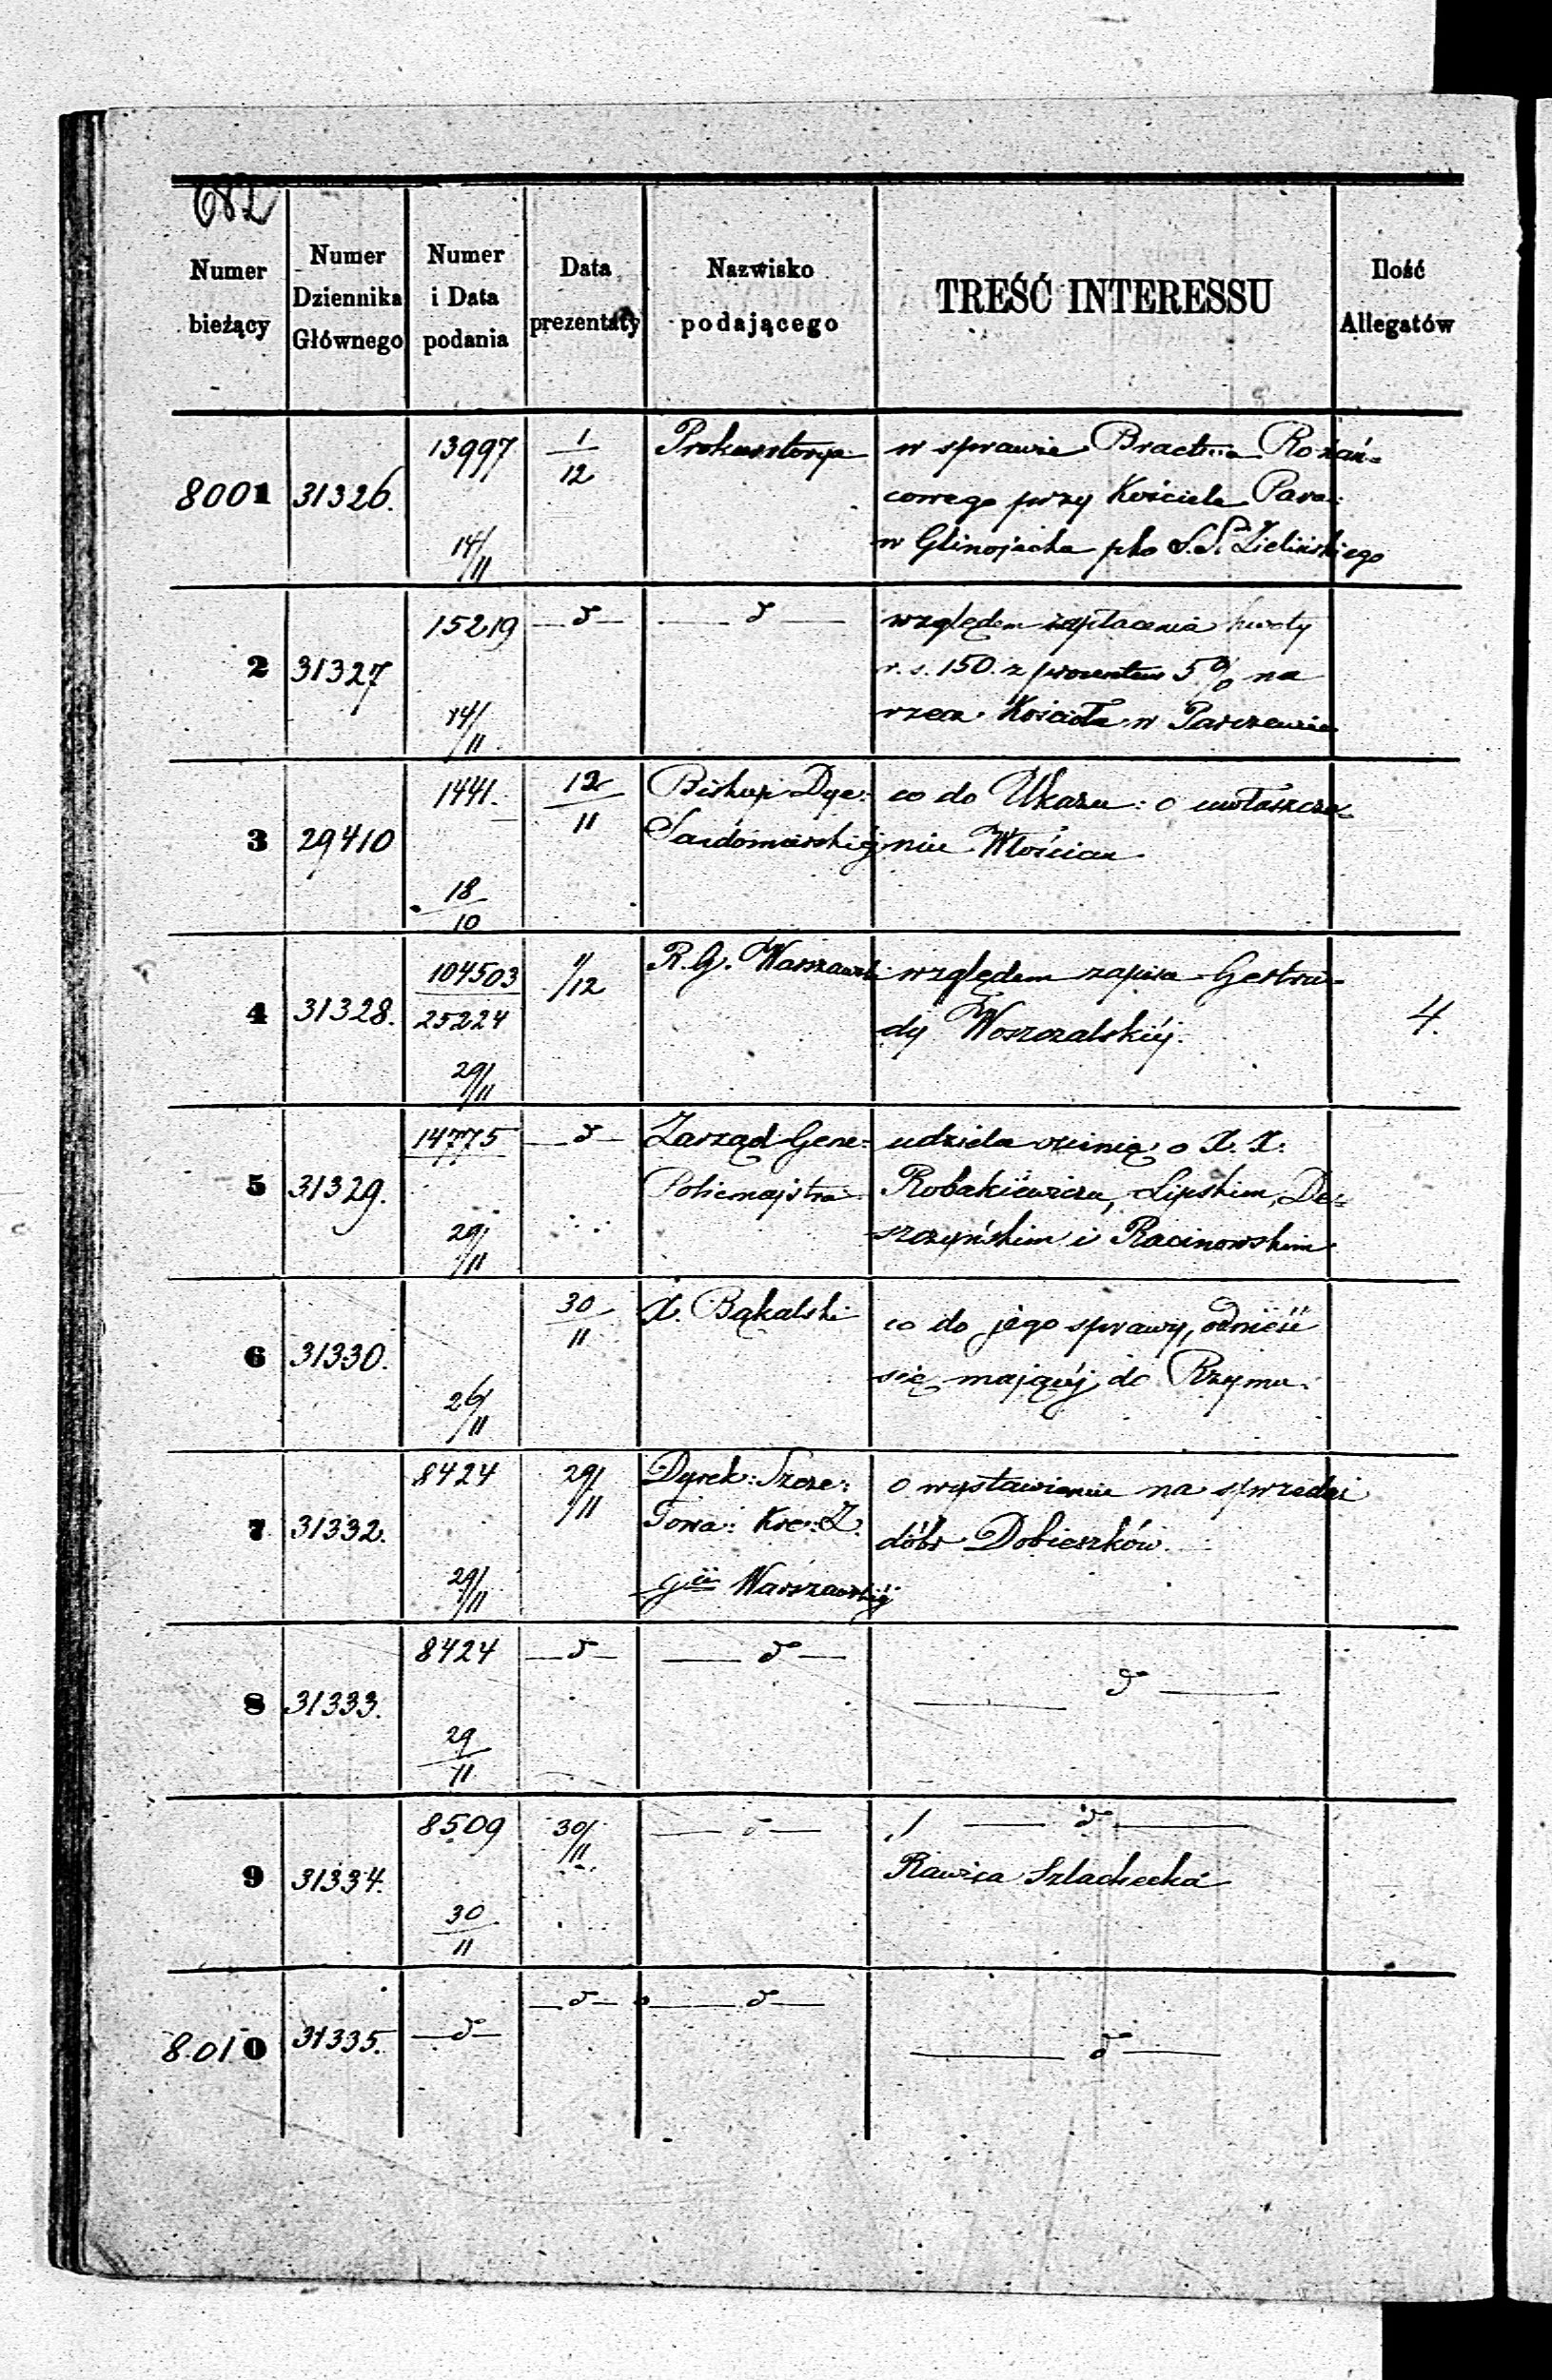 682
Numer bieżący
Numer Dziennika Głównego
Numer i Data podania
Data prezentaty
Nazwisko podającego
TREŚĆ INTERESSU
Ilość Allegatów
8001 31326. 13997 14/11 1/12 Prokuratorya w sprawie Bractwa Różań=
cowego przy Kościele Para:
w Glinojecku pko S.S. Zielińskiego
2 31327 15219 14/11 —d— —d— względem zapłacenia kwoty
r. s. 150. z procentem 5% na
rzecz Kościoła w Parczewie
3 29410 1441. 18/10 12/11 Biskup Dye: co do Ukazu: o uwłaszcze=
Sandomierskiéj niu Włościan
4 31328. 104503/25224 29/11 1/12 R. G. Warszawski względem zapisu Gertru=
dy Woszczalskiéj. 4.
5 31329. 14775 29/11 —d— Zarząd Gene: udziela opinię o X. X.
Policmajstra Robakiewiczu, Lipskim, De=
szczyńskim i Racinowskim
6 31330. 26/11 30/11 X. Bąkalski co do jego sprawy, odnieść
się mającéj do Rzymu.
7 31332. 8424 29/11 29/11 Dyrek: Szcze: o wystawienie na sprzedaż
Towa: Kre: Z. dóbr Dobieszków.
Gii Warszawskiéj
8 31333. 8424 29/11 —d— —d— —d—
9 31334. 8509 30/11 30/11 —d— —d—
Rawica Szlachecka
8010 31335. —d— —d— —d— —d—